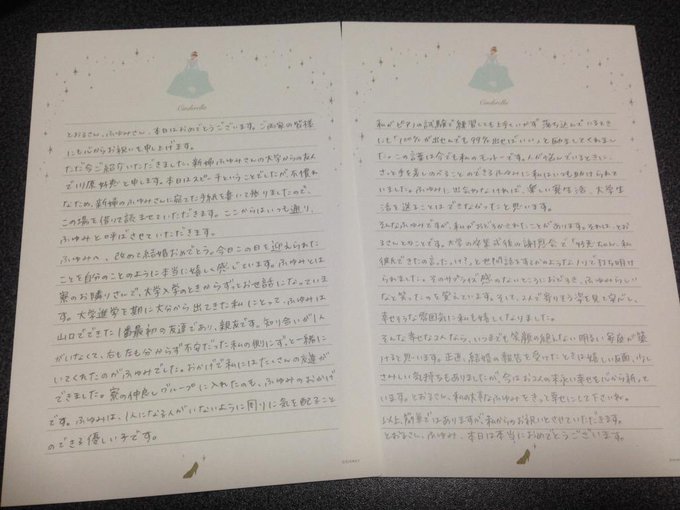 Cinderella
とおるさん、ふゆみさん、本日はおめでとうございます。ご両家の皆様
にも心からお祝いを申し上げます。
ただ今ご紹介いただきました、新婦ふゆみさんの大学からの友人
で川原 と申します。本日はスピーチということでしたが、不慣れ
なため、新婦のふゆみさんに宛てた手紙を書いて参りましたので、
この場を借りて読ませていただきます。ここからはいつも通り、
ふゆみと呼ばせていただきます。
ふゆみへ、改めて結婚おめでとう。今日この日を迎えられた
ことを自分のことのように本当に嬉しく感じています。ふゆみとは
寮のお隣りさんで、大学入学のときからずっとお世話になっていま
す。大学進学を期に大分から出てきた私にとって、ふゆみは
山口でできた1番最初の友達であり、親友です。知り合いが1人
もいなくて、右も左も分からず不安だった私の側にずっと一緒に
いてくれたのがふゆみでした。おかげで私にはたくさんの友達が
できました。寮の仲良しグループに入れたのも、ふゆみのおかげ
です。ふゆみは、1人になる人がいないように周りに気を配ること
のできる優しい子です。
Cinderella
私がピアノの試験で練習しても上手くいかず落ち込んでいるとき
にも「100%が出せんでも99%出せばいい。」と励ましてくれまし
た。この言葉は今でも私のモットーです。人が悩んでいるときに、
さっと手を差しのべることのできるふゆみに私はいつも助けられて
いました。ふゆみに出会わなければ、楽しい寮生活、大学生
活を送ることはできなかったと思います。
そんなふゆみですが、私がおどろかされたことがあります。それは、とお
るさんとのことです。大学の卒業式後の謝恩会で「 ちゃん、私
彼氏できたの言ったっけ?」と世間話でもするかのようなノリで打ち明け
られました。そのサプライズ感のないところにおどろき、ふゆみらしい
なと笑ったのを覚えています。そして、2人で寄りそう姿を見て安心し、
幸せそうな雰囲気に私も嬉しくなりました。
そんな幸せな2人なら、いつまでも笑顔の絶えない明るい家庭が築
けると思います。正直、結婚の報告を受けたときは嬉しい反面、少し
さみしい気持ちもありましたが、今はお2人の末永い幸せを心から祈って
います。とおるさん、私の大事なふゆみをきっと幸せにして下さいね。
以上、簡単ではありますが、私からのお祝いとさせていただきます。
とおるさん、ふゆみ、本日は本当におめでとうございます。